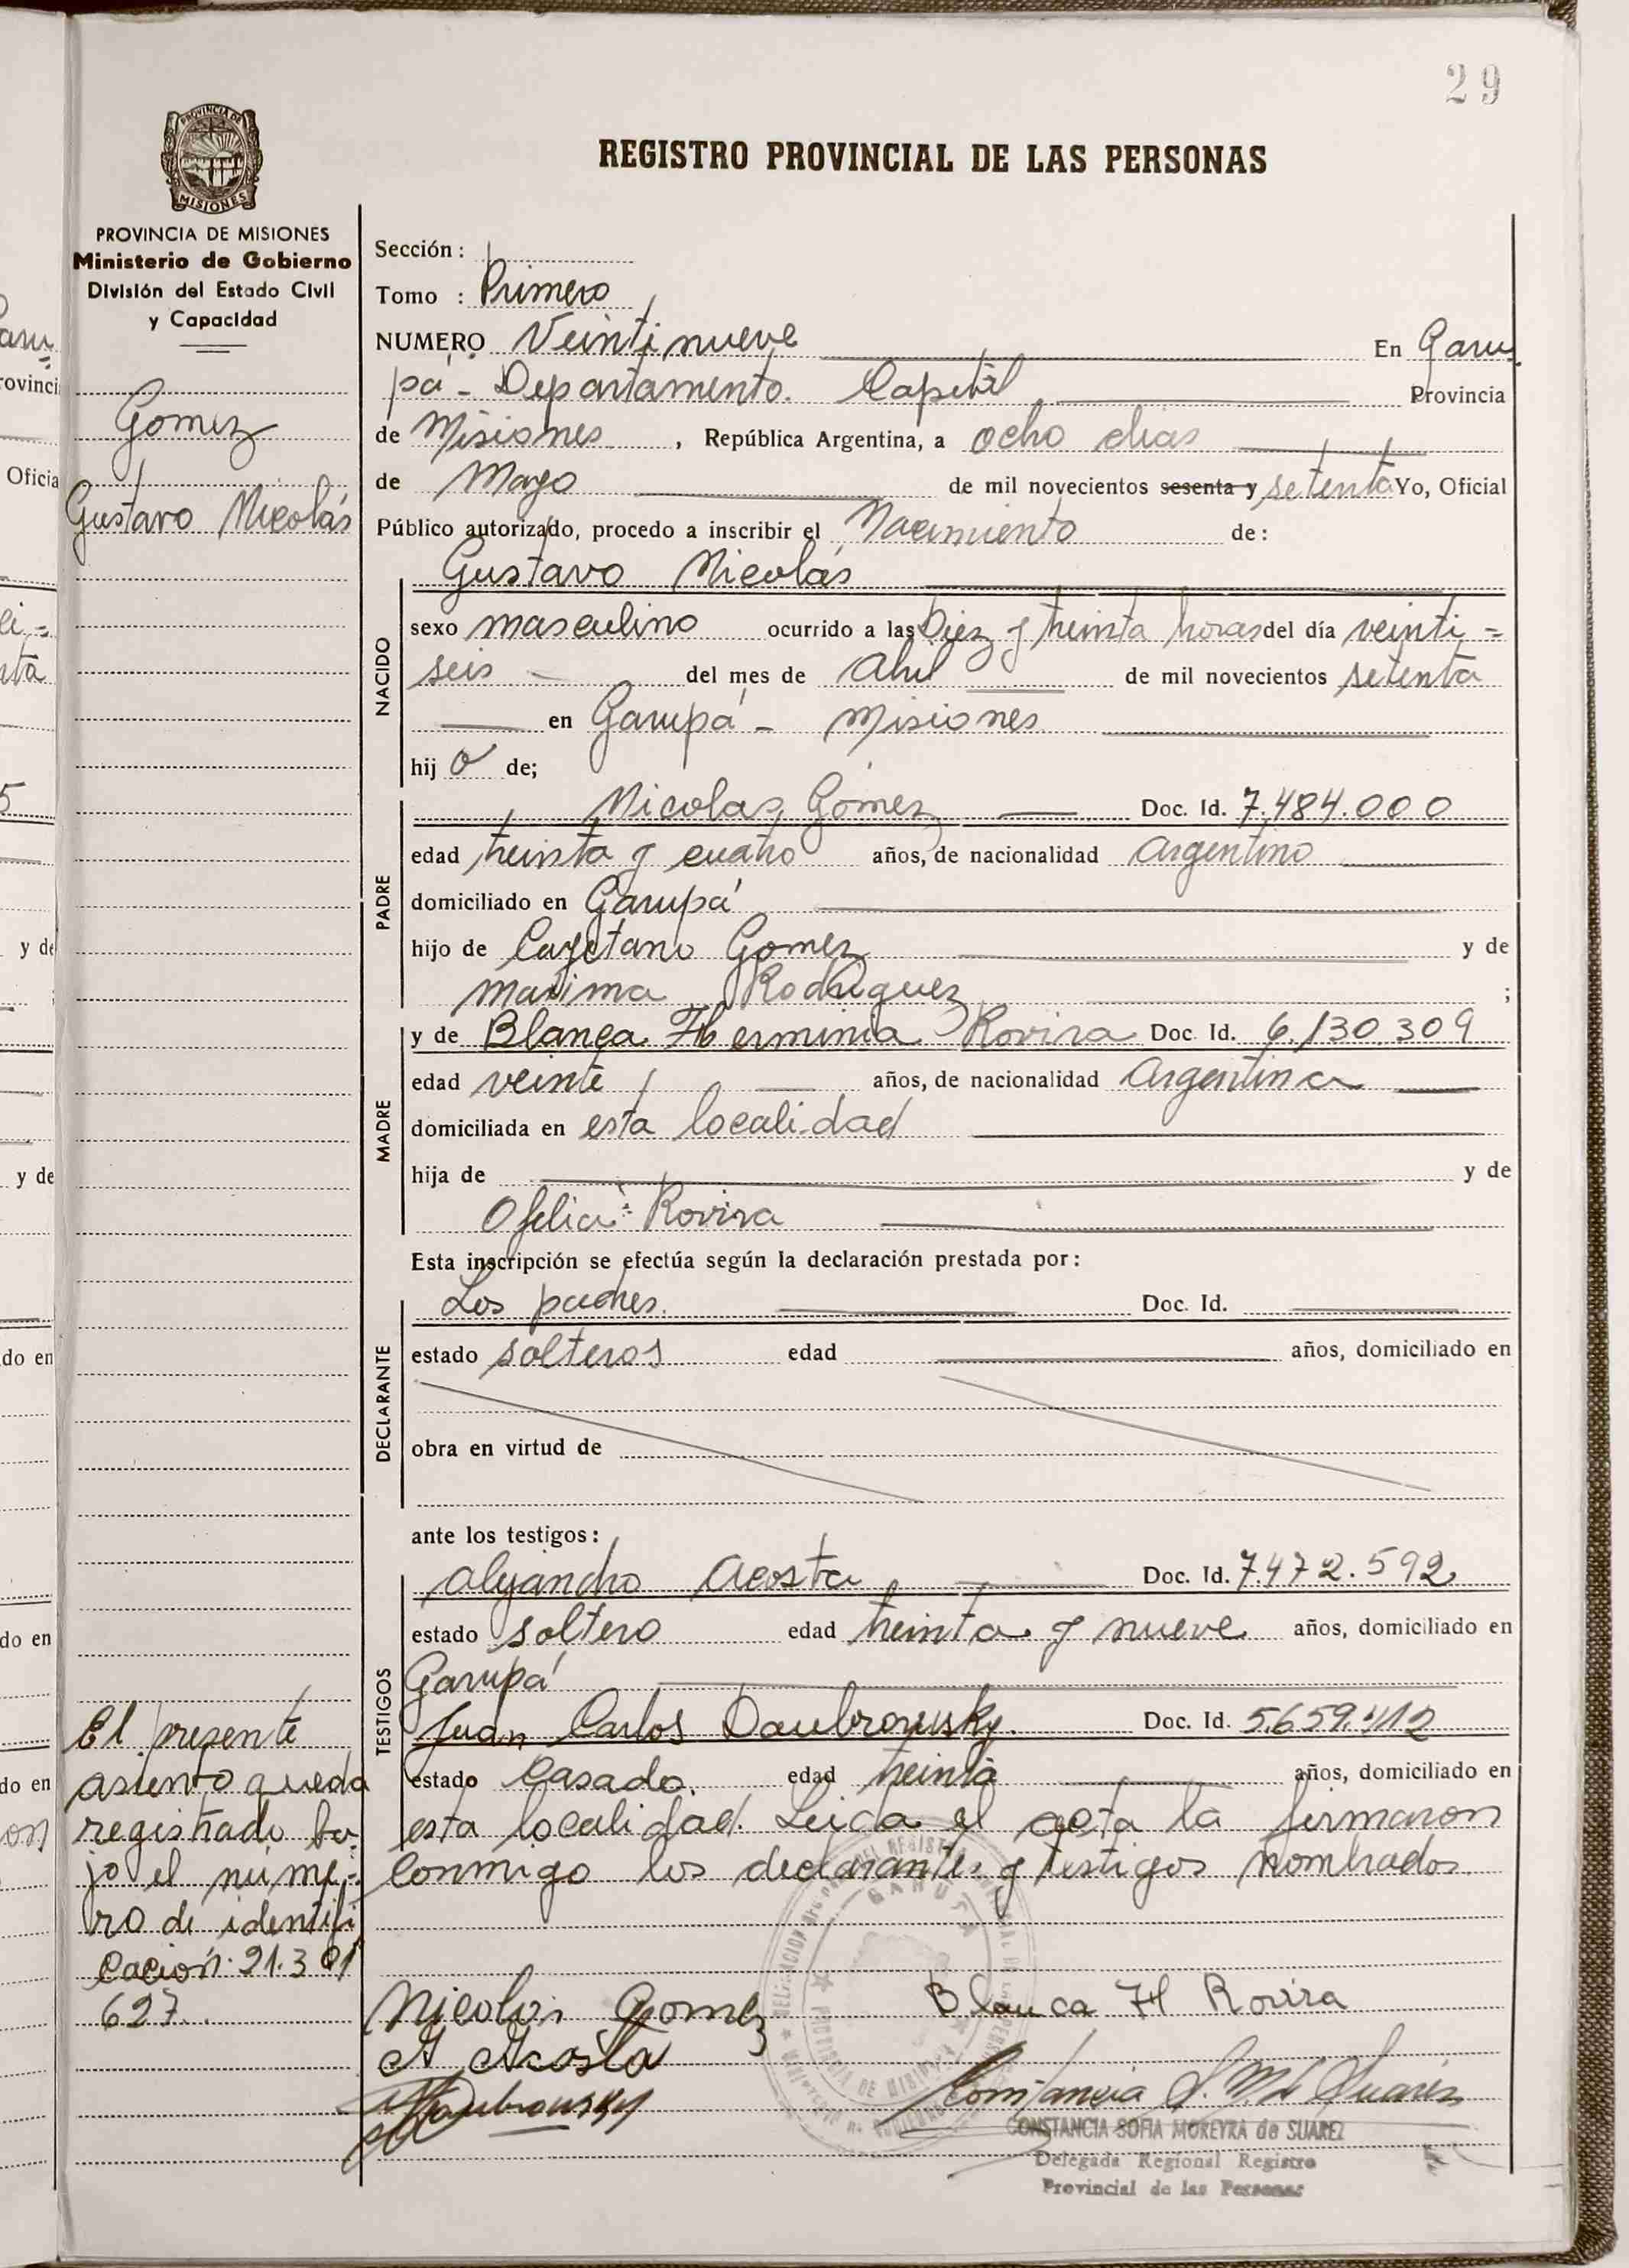 29
PROVINCIA DE
MISIONES
REGISTRO PROVINCIAL DE LAS PERSONAS
PROVINCIA DE MISIONES
Ministerio de Gobierno
División del Estado Civil
y Capacidad
Gomez
Gustavo Nicolás
Sección :
Tomo : Primero
NUMERO Veintinueve En Garu
pá - Departamento. Capital Provincia
de Misiones , República Argentina, a ocho dias
de Mayo de mil novecientos sesenta y setenta Yo, Oficial
Público autorizado, procedo a inscribir el Nacimiento de :
Gustavo Nicolás
NACIDO
sexo masculino ocurrido a las Diez y treinta horas del día veinti =
seis del mes de Abril de mil novecientos setenta
en Garupá - Misiones
hij o de;
PADRE
Nicolas Gómez Doc. Id. 7.484.000
edad treinta y cuatro años, de nacionalidad Argentino
domiciliado en Garupá
hijo de Cayetano Gomez y de
Maxima Rodriguez ;
MADRE
y de Blanca Herminia Rovira Doc. Id. 6.130.309
edad veinte años, de nacionalidad Argentina
domiciliada en esta localidad
hija de y de
Ofelia Rovira
Esta inscripción se efectúa según la declaración prestada por :
DECLARANTE
Los padres. Doc. Id.
estado solteros edad años, domiciliado en
obra en virtud de
ante los testigos :
TESTIGOS
Alejandro Acosta Doc. Id. 7.472.592
estado soltero edad treinta y nueve años, domiciliado en
Garupá
Juan Carlos Daubrowsky. Doc. Id. 5.659.412
estado Casado. edad treinta años, domiciliado en
esta localidad. Leida el acta la firmaron
conmigo los declarantes y testigos nombrados
El presente
asiento queda
registrado ba-
jo el núme-
ro de identifi
cación 21.301
627.
Nicolas Gomez Blanca H Rovira
A Acosta
Daubrowsky
Constancia S. M. de Suarez
CONSTANCIA SOFIA MOREYRA de SUAREZ
Delegada Regional Registro
Provincial de las Personas